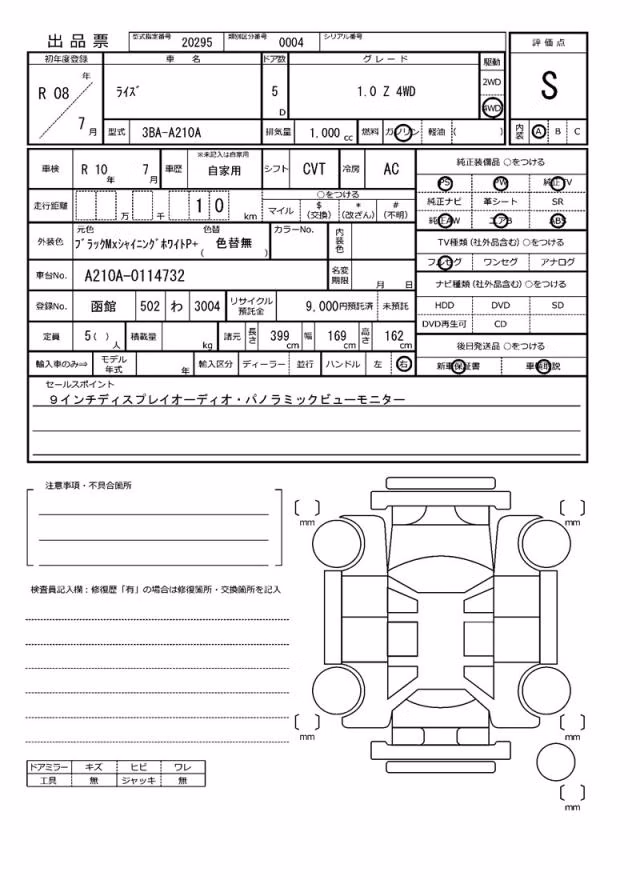 出品票
型式指定番号 20295 類別区分番号 0004 シリアル番号
評価点
S
内装 A B C
初年度登録 車名 ドア数 グレード 駆動
R 08 年 7 月
ライズ
5 D
1.0 Z 4WD
2WD
4WD
型式 3BA-A210A 排気量 1.000 cc 燃料 ガソリン 軽油 ( )
車検 R 10 年 7 月 車歴 ※未記入は自家用 自家用 シフト CVT 冷房 AC
純正装備品 ○をつける
PS PW 純正TV
純正ナビ 革シート SR
純正AW エアB ABS
走行距離 万 千 1 0 km
○をつける
マイル $(交換) *(改ざん) #(不明)
外装色 元色 色替 カラーNo. 内装色
ブラックMxシャイニングホワイトP+ ( 色替無 )
TV種類(社外品含む) ○をつける
フルセグ ワンセグ アナログ
車台No. A210A-0114732 名変期限 月 日
ナビ種類(社外品含む) ○をつける
HDD DVD SD
DVD再生可 CD
登録No. 函館 502 わ 3004 リサイクル預託金 9,000円預託済 未預託
定員 5( )人 積載量 kg 諸元 長さ 399 cm 幅 169 cm 高さ 162 cm
後日発送品 ○をつける
新車保証書 車輌取説
輸入車のみ⇨ モデル年式 年 輸入区分 ディーラー 並行 ハンドル 左 右
セールスポイント
9インチディスプレイオーディオ・パノラミックビューモニター
注意事項・不具合箇所
検査員記入欄:修復歴「有」の場合は修復箇所・交換箇所を記入
mm
mm
mm
mm
mm
ドアミラー キズ ヒビ ワレ
工具 無 ジャッキ 無